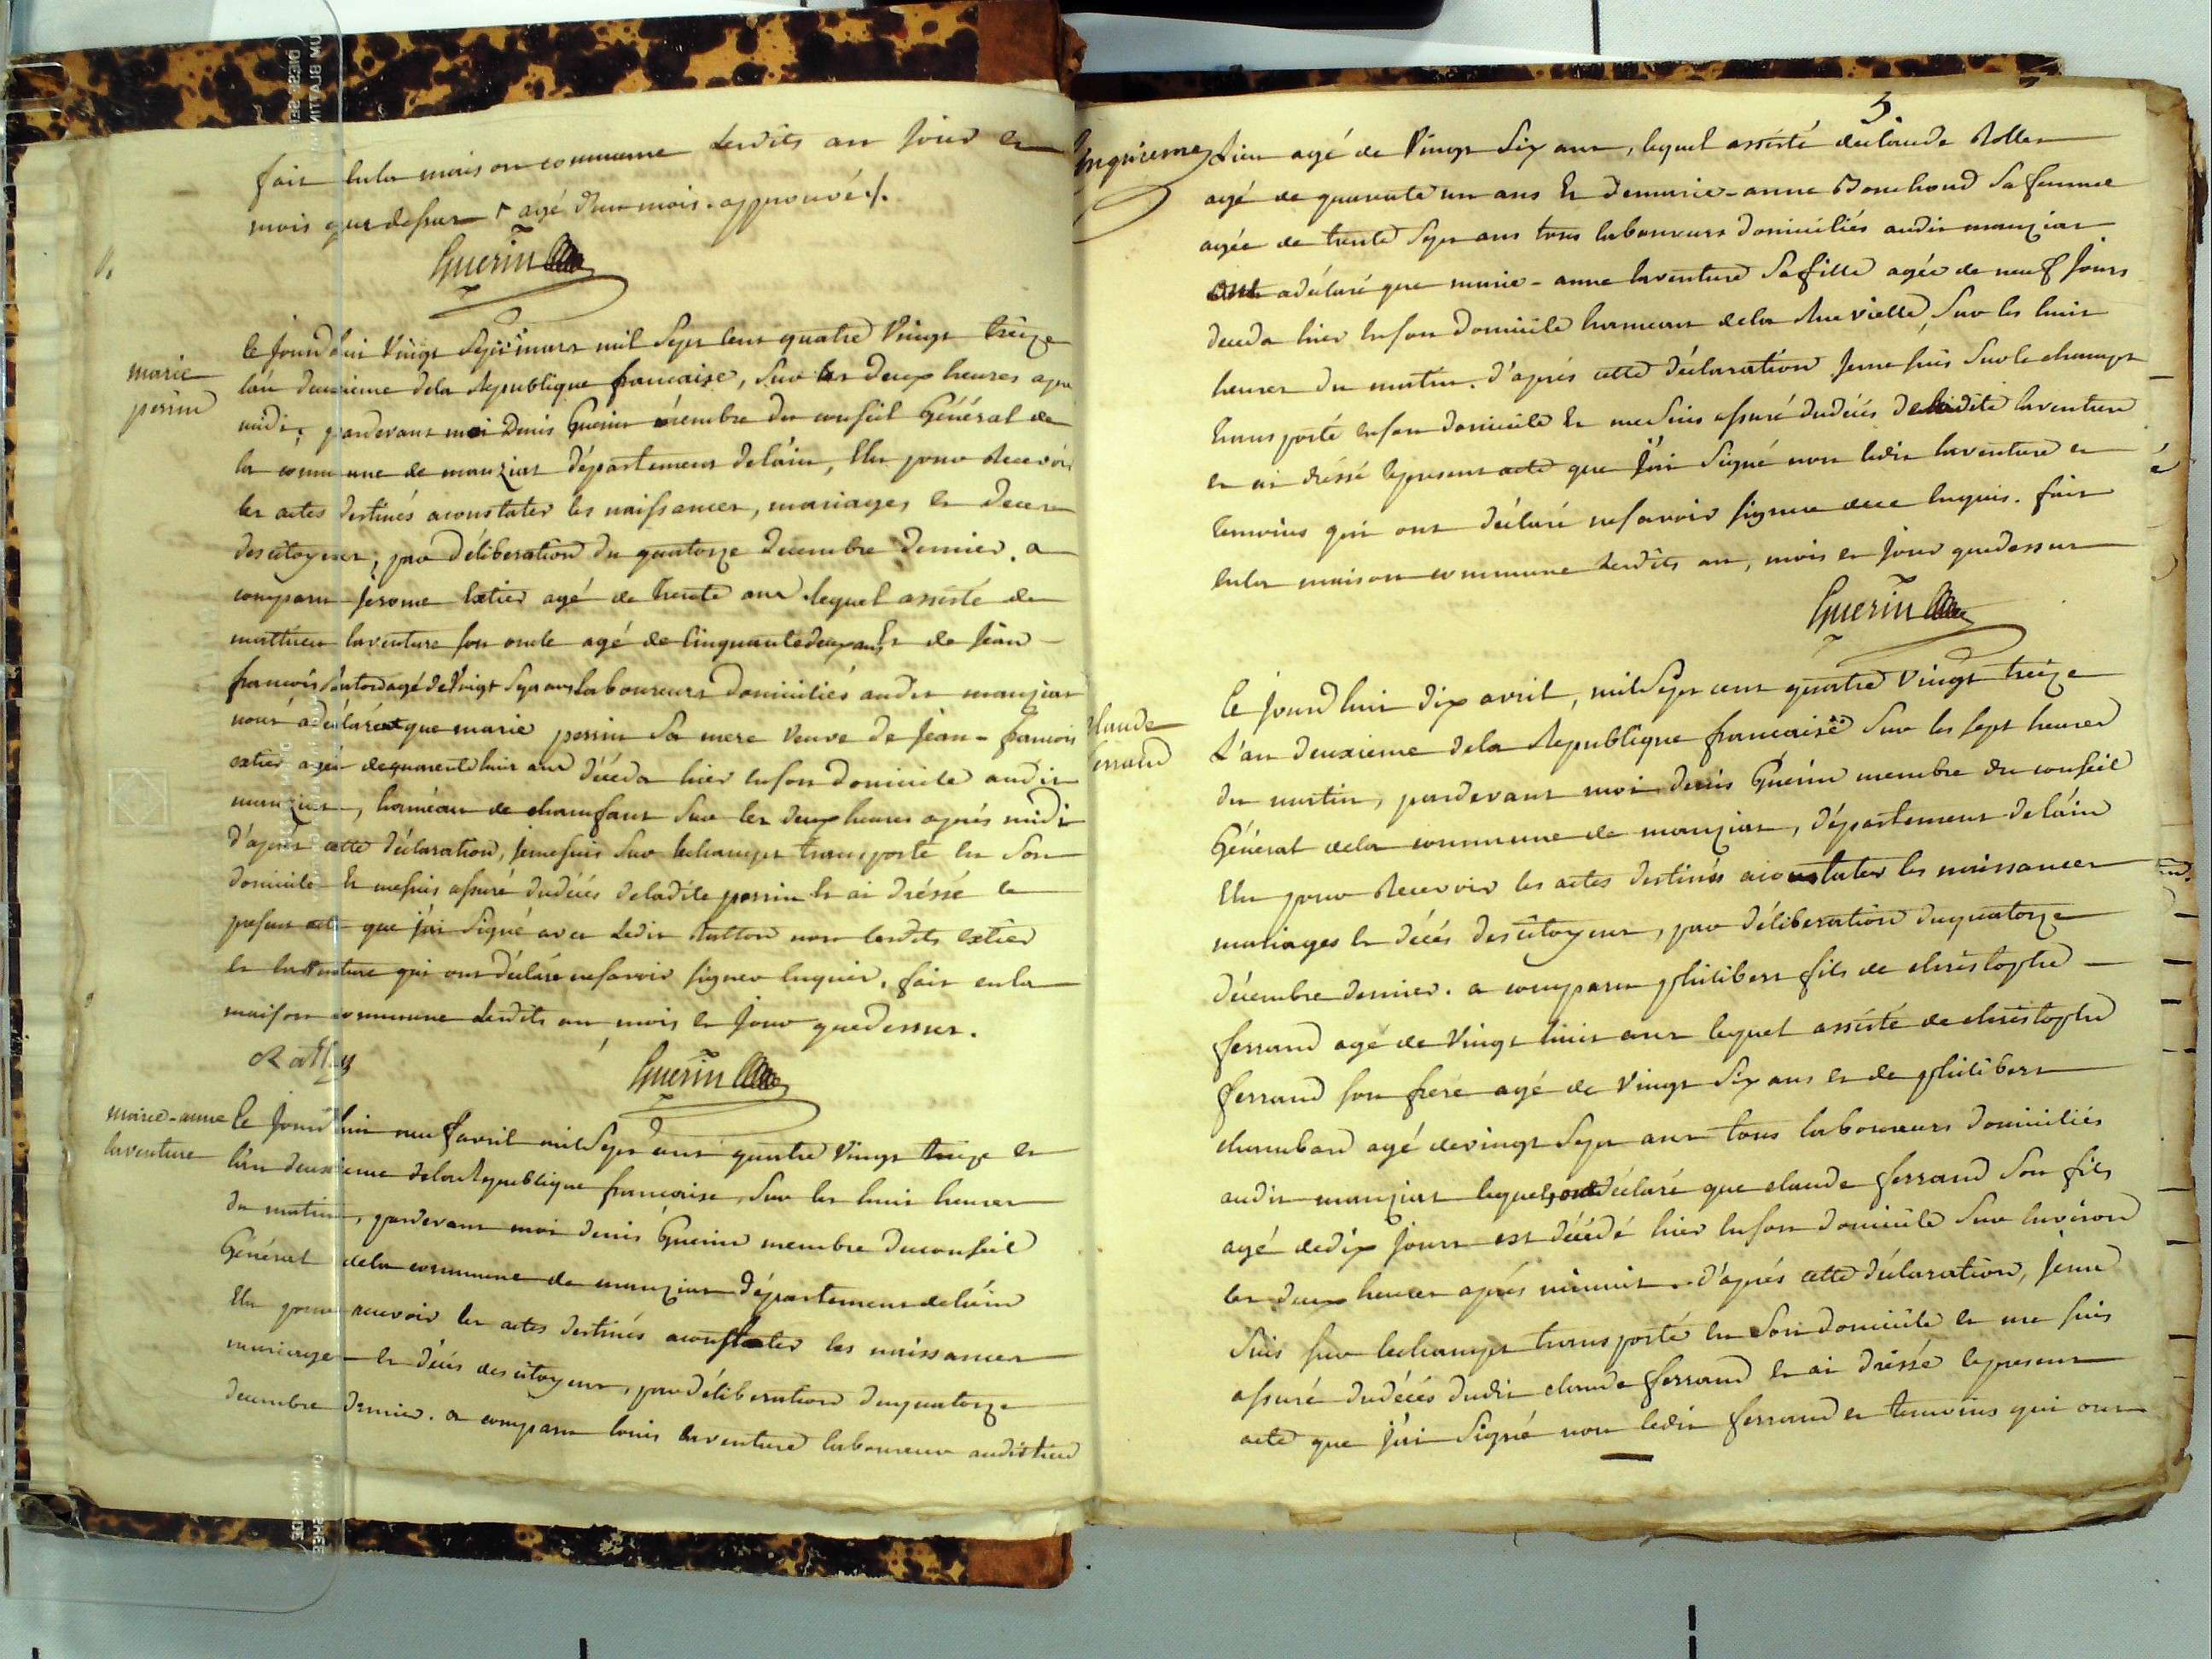 fait en la maison commune lesdits an jour et
mois que dessus + agé d'un mois. approuvé ./.
Guerin
marie
perrin
Ce jourdhui vingt sept mars mil sept cent quatre vingt treize
l'an deuxieme de la Republique francaise, sur les deux heures apres
midi, pardevant moi Denis Guerin membre du conseil Général de
la commune de manziat département de l'ain, Elu pour recevoir
les actes destinés a constater les naissances, mariages et deces
des citoyens, par déliberation du quatorze decembre dernier. a
comparu jerome extier agé de trente ans lequel assisté de
matthieu laventure son oncle agé de cinquante deux ans Et de jean
francois agé de vingt sept ans laboureurs domiciliés audit manziat
nous a déclaré que marie perrin sa mere veuve de jean-francois
extier agée de quarente huit ans décéda hier en son domicile audit
manziat, hameau de chamfant sur les deux heures aprés midi
d'aprés cette déclaration, je me suis sur le champs transporté en son
domicile Et me suis assuré du décés de ladite perrin Et ai dréssé le
présent acte que j'ai signé avec ledit non lesdits extier
et laventure qui ont déclaré ne savoir signer enquis. fait en la
maison commune lesdits an mois et jour que dessus.
Guerin
marie-anne
laventure
Ce jourdhui neuf avril mil sept cent quatre vingt treize et
l'an deuxieme de la Republique francaise, sur les huit heures
du matin, pardevant moi denis Guerin membre du conseil
Général de la commune de manziat département de l'ain
Elu pour recevoir les actes destinés a constater les naissances
mariages et décés des citoyens, par déliberation du quatorze
decembre dernier. a comparu louis laventure laboureur audit lieu
5
cinquieme
Lieu agé de vingt six ans, lequel assisté de claude Rollet
agé de quarente un ans Et de marie-anne Bouchoud sa femme
agée de trente sept ans tous laboureurs domiciliés audit manziat
ont a déclaré que marie-anne laventure sa fille agée de neuf jours
deceda hier en son domicile hameau de la Rue vielle, sur les huit
heures du matin. d'aprés cette déclaration je me suis sur le champs
transporté en son domicile Et me suis assuré du décés de ladite laventure
et ai dréssé le present acte que j'ai signé non ledit laventure et
temoins qui ont déclaré ne savoir signer de ce enquis. fait
en la maison commune lesdits an, mois et jour que dessus
Guerin
Claude
ferrand
Ce jourdhui dix avril, mil sept cent quatre vingt treize
L'an deuxieme de la Republique francaise sur les sept heures
du matin, pardevant moi denis Guerin membre du conseil
Général de la commune de manziat, département de l'ain
Elu pour recevoir les actes destinés a constater les naissances
mariages et décés des citoyens, par déliberation du quatorze
décembre dernier. a comparu philibert fils de christophe
ferrand agé de vingt huit ans lequel assisté de christophe
ferrand son frere agé de vingt six ans et de philibert
chambard agé de vingt sept ans tous laboureurs domiciliés
audit manziat lequel ont déclaré que claude ferrand son fils
agé de dix jours est décédé hier en son domicile sur environ
les deux heures aprés minuit. d'aprés cette déclaration, je me
suis sur le champs transporté en son domicile et me suis
assuré du décés dudit claude ferrand et ai dréssé le present
acte que j'ai signé non ledit ferrand et temoins qui ont